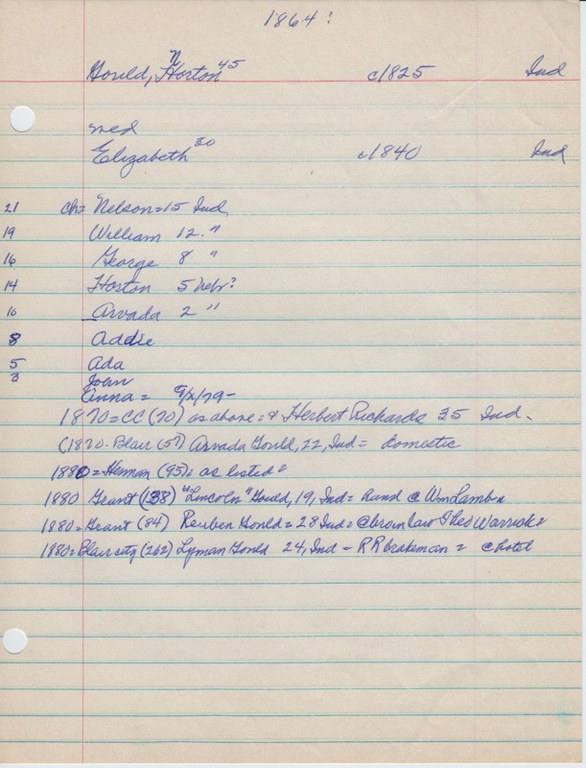 1864?
Gould, N Horton 45 c1825 Ind
med
Elizabeth 30 c1840 Ind
21 ch= Nelson=15 Ind
19 William 12 "
16 George 8 "
14 Horton 5 Nebr?
10 Arvada 2 "
8 Addie
5 Ada
3 John
Anna = 9/x/79-
1870=CC (70) as above = & Herbert Richards 35 Ind.
(1870-Blair (57) Arvada Gould, 22, Ind = domestic
1880=Herman (95)= as listed=
1880 Grant (138) "Lincoln" Gould, 19, Ind= @ Wm Lamb
1880=Grant (84) Reuben Gould=28 Ind= @ bro in law Theo Warrick=
1880=Blair city (262) Lyman Gould 24, Ind - RR brakeman = @ hotel